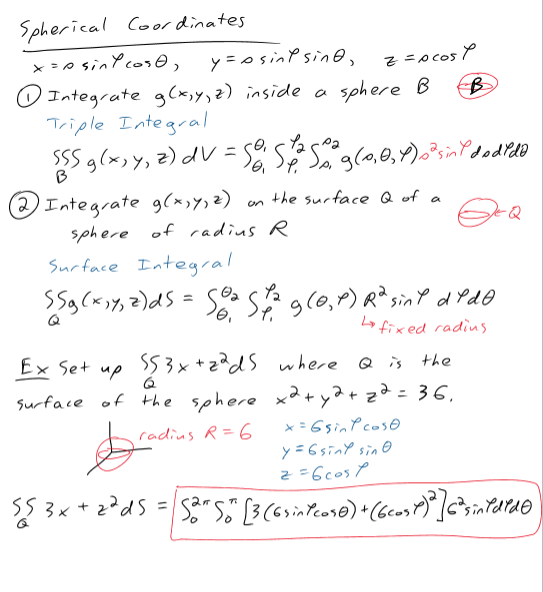 Spherical Coordinates
x = ρ sinφ cosθ, y = ρ sinφ sinθ, z = ρ cosφ
① Integrate g(x,y,z) inside a sphere B B
Triple Integral
∫∫∫_B g(x,y,z) dV = ∫_θ₁^θ₁ ∫_φ₁^φ₂ ∫_ρ₁^ρ₂ g(ρ,θ,φ) ρ² sinφ dρdφdθ
② Integrate g(x,y,z) on the surface Q of a ← Q
sphere of radius R
Surface Integral
∫∫_Q g(x,y,z)dS = ∫_θ₁^θ₂ ∫_φ₁^φ₂ g(θ,φ) R² sinφ dφdθ
↳ fixed radius
Ex Set up ∫∫_Q 3x + z² dS where Q is the
surface of the sphere x² + y² + z² = 36.
radius R = 6
x = 6 sinφ cosθ
y = 6 sinφ sinθ
z = 6 cosφ
∫∫_Q 3x + z² dS = ∫_0^2π ∫_0^π [3(6sinφcosθ) + (6cosφ)²] 6² sinφ dφdθ